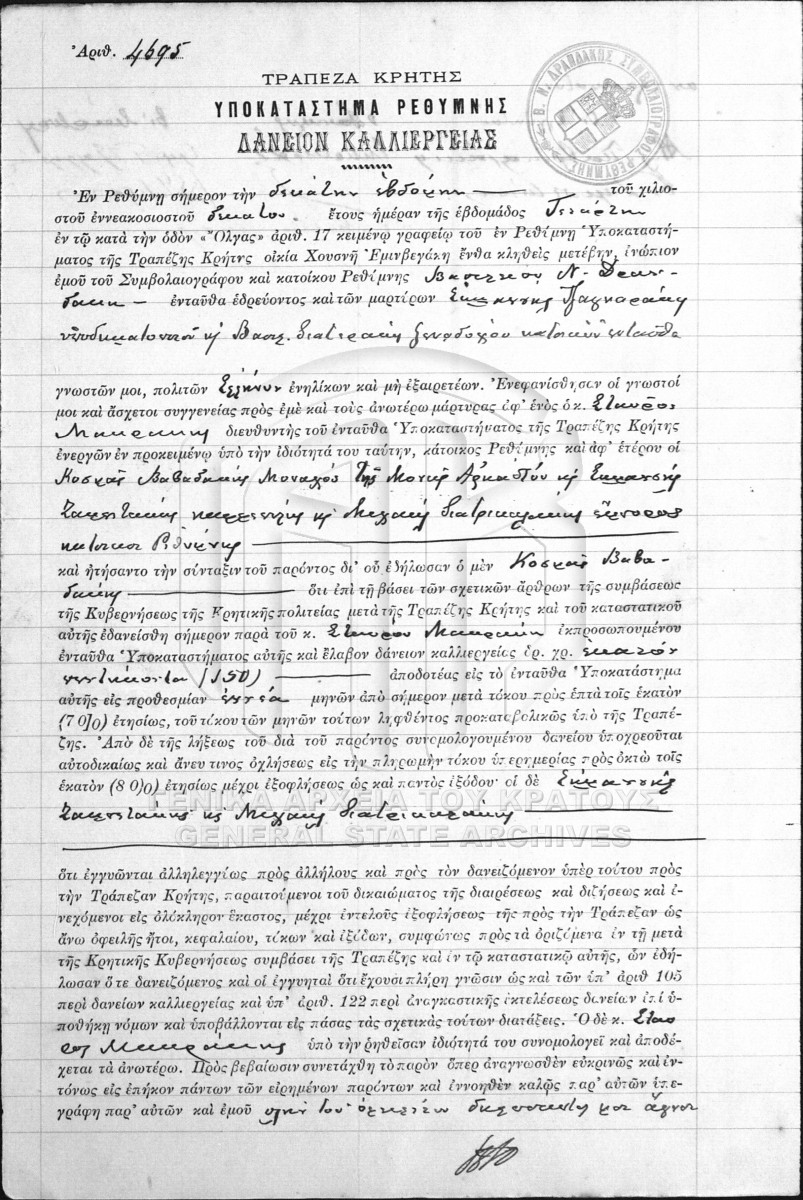 Ἀριθ. 4695
Β. Ν. ΔΡΑΝΔΑΚΗΣ ΣΥΜΒΟΛΑΙΟΓΡΑΦΟΣ ΡΕΘΥΜΝΗΣ
ΤΡΑΠΕΖΑ ΚΡΗΤΗΣ
ΥΠΟΚΑΤΑΣΤΗΜΑ ΡΕΘΥΜΝΗΣ
ΔΑΝΕΙΟΝ ΚΑΛΛΙΕΡΓΕΙΑΣ
Ἐν Ρεθύμνῃ σήμερον τὴν δεκάτην ἑβδόμην τοῦ χιλιο-
στοῦ ἐννεακοσιοστοῦ δεκάτου ἔτους ἡμέραν τῆς ἑβδομάδος Τετάρτην
ἐν τῷ κατὰ τὴν ὁδὸν «Ὄλγας» ἀριθ. 17 κειμένῳ γραφείῳ τοῦ ἐν Ρεθύμνῃ Ὑποκαταστή-
ματος τῆς Τραπέζης Κρήτης οἰκία Χουσνῆ Ἐμινβεγάκη ἔνθα κληθεὶς μετέβην, ἐνώπιον
ἐμοῦ τοῦ Συμβολαιογράφου καὶ κατοίκου Ρεθύμνης Βασιλείου Ν. Δραν-
δάκη ἐνταῦθα ἑδρεύοντος καὶ τῶν μαρτύρων
ὑποδηματοποιοῦ κ Βασ. ξενοδόχου κατοίκων ἐνταῦθα
γνωστῶν μοι, πολιτῶν Ἑλλήνων ἐνηλίκων καὶ μὴ ἐξαιρετέων. Ἐνεφανίσθησαν οἱ γνωστοί
μοι καὶ ἄσχετοι συγγενείας πρὸς ἐμὲ καὶ τοὺς ἀνωτέρω μάρτυρας ἀφ' ἑνὸς ὁ κ. Σταῦρος
Μακράκης διευθυντὴς τοῦ ἐνταῦθα Ὑποκαταστήματος τῆς Τραπέζης Κρήτης
ἐνεργῶν ἐν προκειμένῳ ὑπὸ τὴν ἰδιότητά του ταύτην, κάτοικος Ρεθύμνης καὶ ἀφ' ἑτέρου οἱ
Κοσμᾶς Βαβαδάκης Μοναχὸς τῆς Μονῆς
ἔμπορος
κάτοικοι Ρεθύμνης
καὶ ᾐτήσαντο τὴν σύνταξιν τοῦ παρόντος δι' οὗ ἐδήλωσαν ὁ μὲν Κοσμᾶς Βαβα-
δάκης ὅτι ἐπὶ τῇ βάσει τῶν σχετικῶν ἄρθρων τῆς συμβάσεως
τῆς Κυβερνήσεως τῆς Κρητικῆς πολιτείας μετὰ τῆς Τραπέζης Κρήτης καὶ τοῦ καταστατικοῦ
αὐτῆς ἐδανείσθη σήμερον παρὰ τοῦ κ. Σταύρου Μακράκη ἐκπροσωπουμένου
ἐνταῦθα Ὑποκαταστήματος αὐτῆς καὶ ἔλαβον δάνειον καλλιεργείας δρ. χρ. ἑκατὸν
πεντήκοντα (150) ἀποδοτέας εἰς τὸ ἐνταῦθα Ὑποκατάστημα
αὐτῆς εἰς προθεσμίαν ἐννέα μηνῶν ἀπὸ σήμερον μετὰ τόκου πρὸς ἑπτὰ τοῖς ἑκατὸν
(7 0)0) ἐτησίως, τοῦ τόκου τῶν μηνῶν τούτων ληφθέντος προκαταβολικῶς ὑπὸ τῆς Τραπέ-
ζης. Ἀπὸ δὲ τῆς λήξεως τοῦ διὰ τοῦ παρόντος συνομολογουμένου δανείου ὑποχρεοῦται
αὐτοδικαίως καὶ ἄνευ τινος ὀχλήσεως εἰς τὴν πληρωμὴν τόκου ὑπερημερίας πρὸς ὀκτὼ τοῖς
ἑκατὸν (8 0)0) ἐτησίως μέχρι ἐξοφλήσεως ὡς καὶ παντὸς ἐξόδου· οἱ δὲ
ΓΕΝΙΚΑ ΑΡΧΕΙΑ ΤΟΥ ΚΡΑΤΟΥΣ
GENERAL STATE ARCHIVES
ὅτι ἐγγυῶνται ἀλληλεγγύως πρὸς ἀλλήλους καὶ πρὸς τὸν δανειζόμενον ὑπὲρ τούτου πρὸς
τὴν Τράπεζαν Κρήτης, παραιτούμενοι τοῦ δικαιώματος τῆς διαιρέσεως καὶ διζήσεως καὶ ἐ-
νεχόμενοι εἰς ὁλόκληρον ἕκαστος, μέχρι ἐντελοῦς ἐξοφλήσεως τῆς πρὸς τὴν Τράπεζαν ὡς
ἄνω ὀφειλῆς ἤτοι, κεφαλαίου, τόκων καὶ ἐξόδων, συμφώνως πρὸς τὰ ὁριζόμενα ἐν τῇ μετὰ
τῆς Κρητικῆς Κυβερνήσεως συμβάσει τῆς Τραπέζης καὶ ἐν τῷ καταστατικῷ αὐτῆς, ὧν ἐδή-
λωσαν ὅ τε δανειζόμενος καὶ οἱ ἐγγυηταὶ ὅτι ἔχουσι πλήρη γνῶσιν ὡς καὶ τῶν ὑπ' ἀριθ 105
περὶ δανείων καλλιεργείας καὶ ὑπ' ἀριθ. 122 περὶ ἀναγκαστικῆς ἐκτελέσεως δανείων ἐπὶ ὑ-
ποθήκῃ νόμων καὶ ὑποβάλλονται εἰς πάσας τὰς σχετικὰς τούτων διατάξεις. Ὁ δὲ κ. Σταῦ-
ρος Μακράκης ὑπὸ τὴν ῥηθεῖσαν ἰδιότητά του συνομολογεῖ καὶ ἀποδέ-
χεται τὰ ἀνωτέρω. Πρὸς βεβαίωσιν συνετάχθη τὸ παρὸν ὅπερ ἀναγνωσθὲν εὐκρινῶς καὶ ἐν-
τόνως εἰς ἐπήκοον πάντων τῶν εἰρημένων παρόντων καὶ ἐννοηθὲν καλῶς παρ' αὐτῶν ὑπε-
γράφη παρ' αὐτῶν καὶ ἐμοῦ πλὴν τοῦ